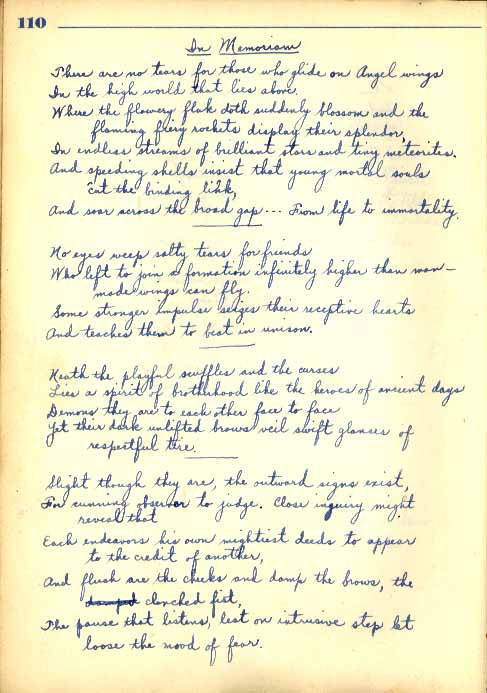 110
In Memoriam
There are no tears for those who glide on Angel wings
In the high world that lies above.
Where the flowery flak doth suddenly blossom and the
flaming fiery rockets display their splendor,
In endless streams of brilliant stars and tiny meteorites.
And speeding shells insist that young mortal souls
cut the binding link,
And soar across the broad gap --- From life to immortality.
No eyes weep salty tears for friends
Who left to join a formation infinitely higher than man—
made wings can fly.
Some stronger impulse seizes their receptive hearts
And teaches them to beat in unison.
Neath the playful scuffles and the curses
Lies a spirit of brotherhood like the heroes of ancient days
Demons they are to each other face to face
Yet their dark unlifted brows veil swift glances of
respectful
Slight though they are, the outward signs exist,
For cunning observer to judge. Close inquiry might
reveal that
Each endeavors his own mightiest deeds to appear
to the credit of another,
And flush are the cheeks and damp the brows, the
damped clenched fist,
The pause that listens, lest an intrusive step let
loose the mood of fear.